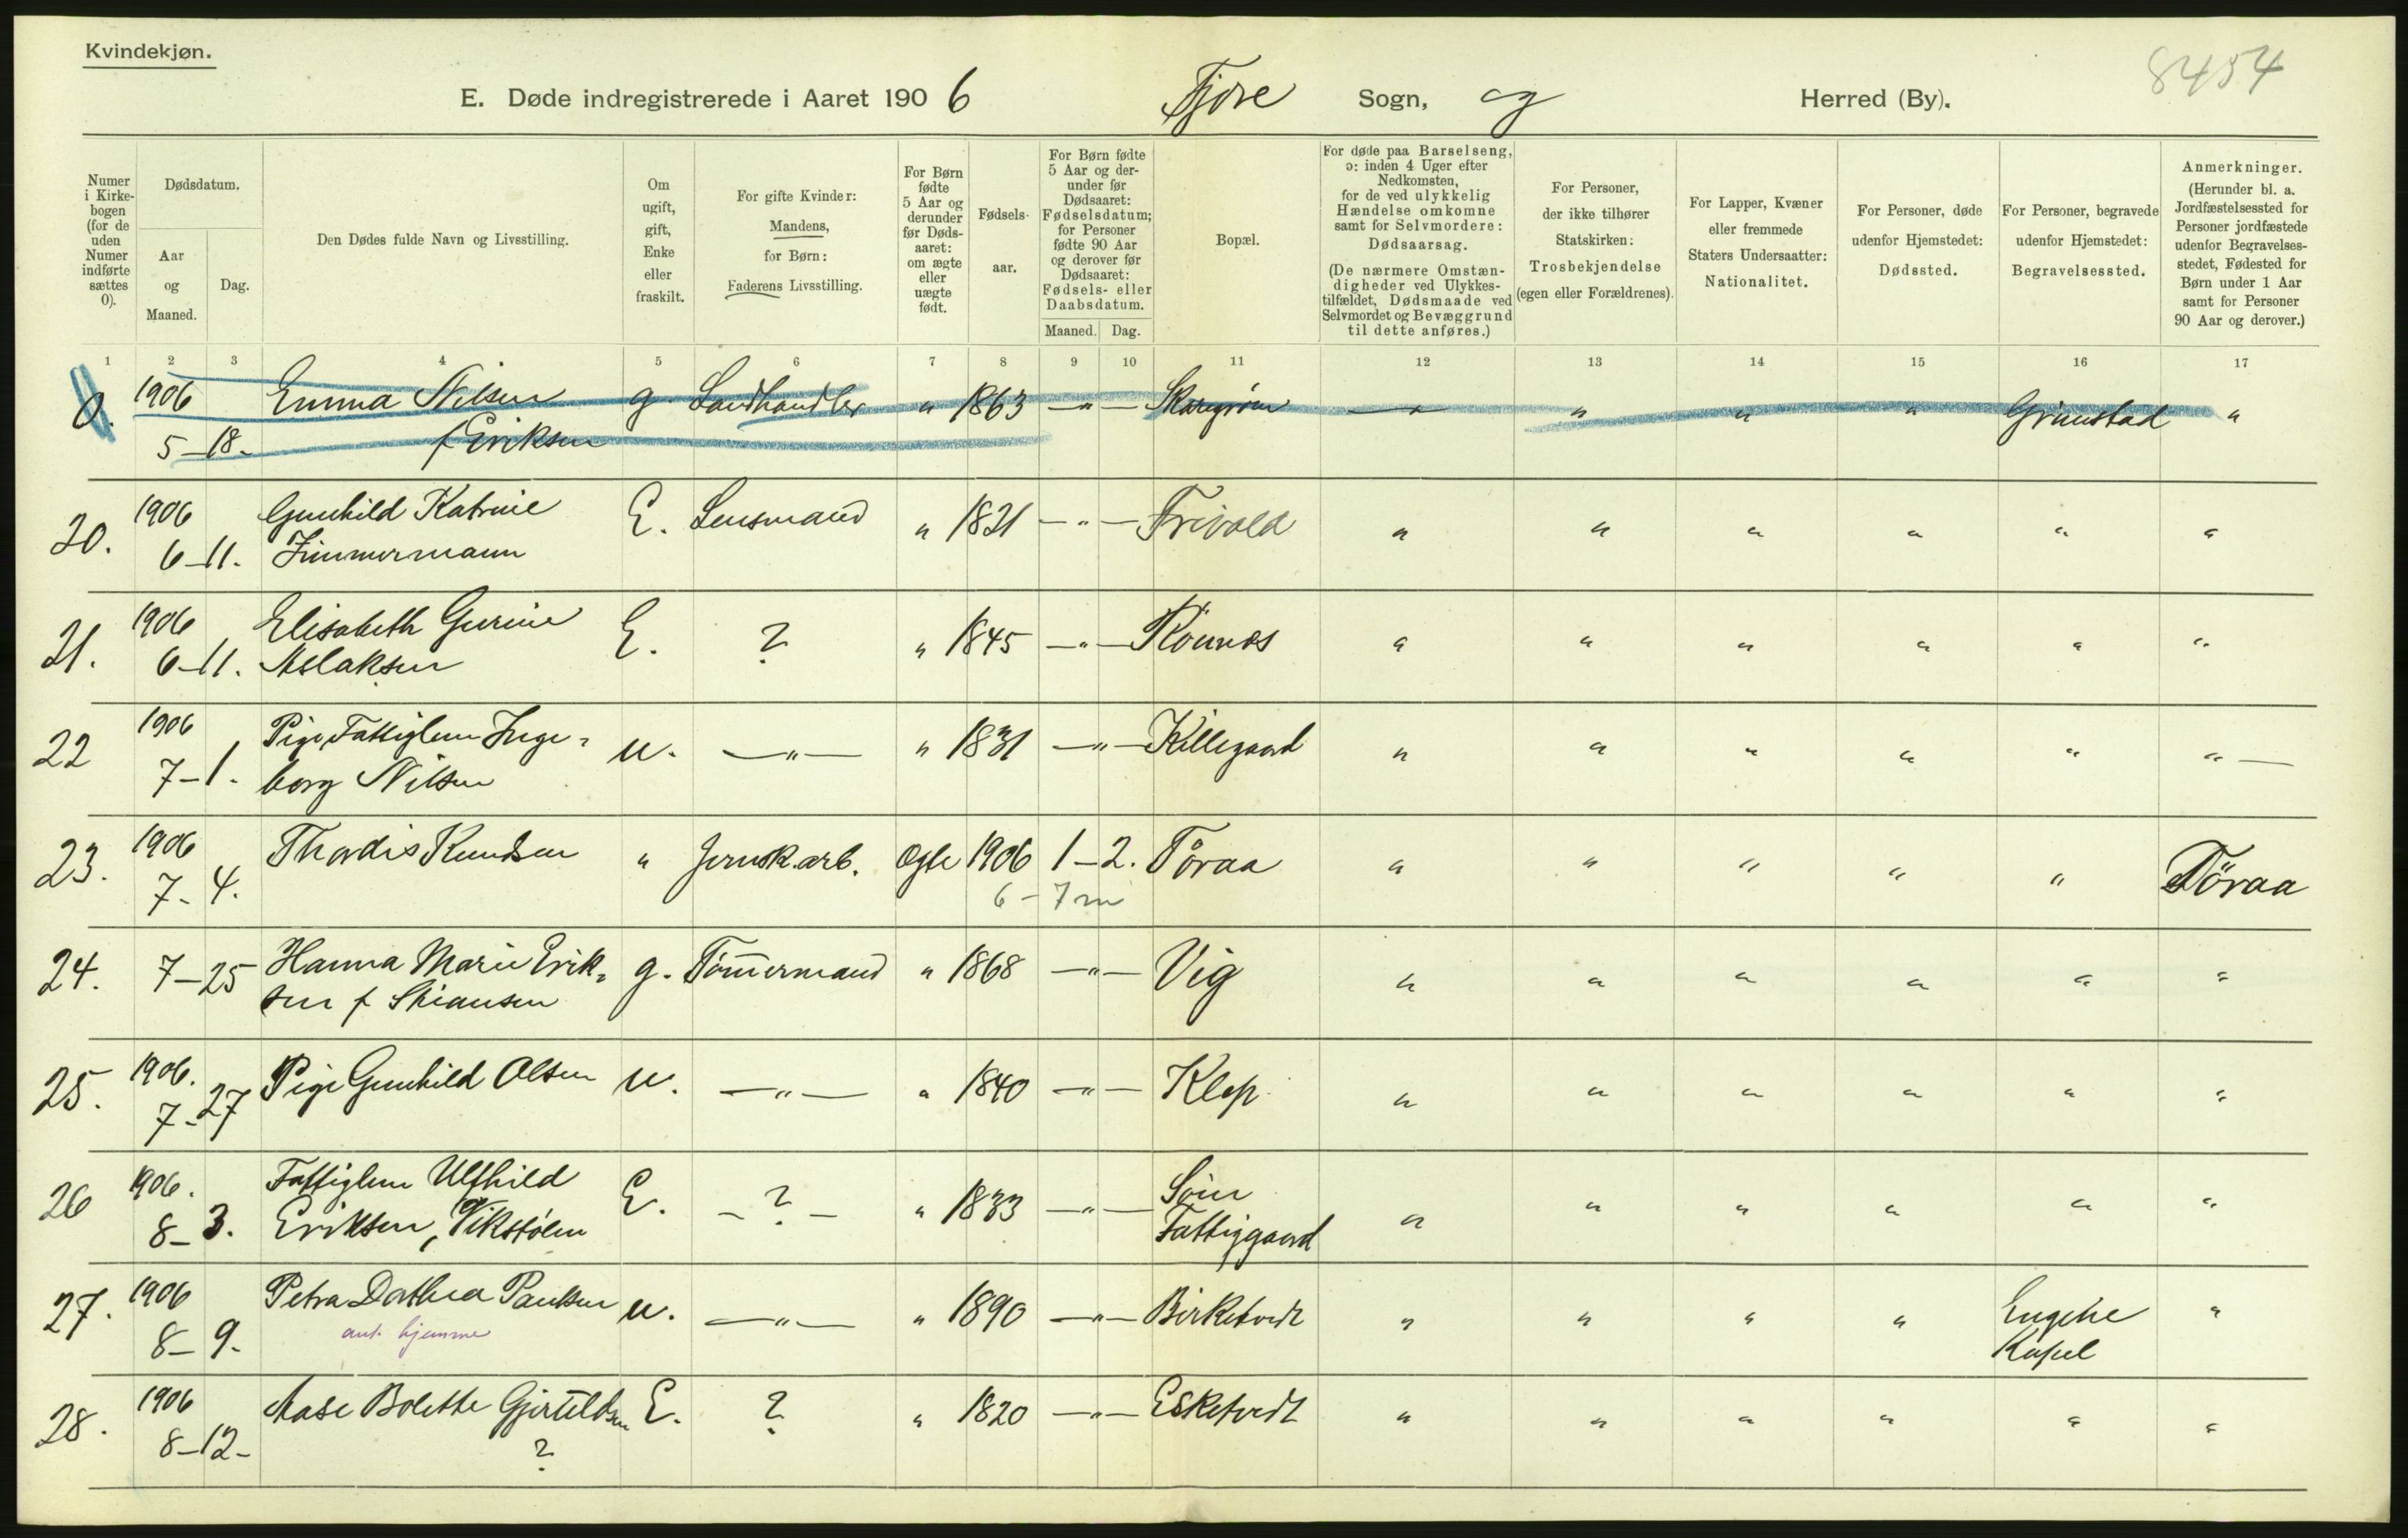 Kvindekjøn.
8454
E. Døde indregistrerede i Aaret 1906 Fjære Sogn, og Herred (By).
Numer i Kirkebogen (for de uden Numer indførte sættes 0).
Dødsdatum.
Aar og Maaned.
Dag.
Den Dødes fulde Navn og Livsstilling.
Om ugift, gift, Enke eller fraskilt.
For gifte Kvinder: Mandens, for Børn: Faderens Livsstilling.
For Børn fødte 5 Aar og derunder før Dødsaaret: om ægte eller uægte født.
Fødselsaar.
For Børn fødte 5 Aar og derunder før Dødsaaret: Fødselsdatum; for Personer fødte 90 Aar og derover før Dødsaaret: Fødsels- eller Daabsdatum.
Maaned. Dag.
Bopæl.
For døde paa Barselseng, ɔ: inden 4 Uger efter Nedkomsten, for de ved ulykkelig Hændelse omkomne samt for Selvmordere: Dødsaarsag.
(De nærmere Omstændigheder ved Ulykkestilfældet, Dødsmaade ved Selvmordet og Bevæggrund til dette anføres.)
For Personer, der ikke tilhører Statskirken: Trosbekjendelse (egen eller Forældrenes).
For Lapper, Kvæner eller fremmede Staters Undersaatter: Nationalitet.
For Personer, døde udenfor Hjemstedet: Dødssted.
For Personer, begravede udenfor Hjemstedet: Begravelsessted.
Anmerkninger.
(Herunder bl. a. Jordfæstelsessted for Personer jordfæstede udenfor Begravelsesstedet, Fødested for Børn under 1 Aar samt for Personer 90 Aar og derover.)
1 2 3 4 5 6 7 8 9 10 11 12 13 14 15 16 17
0. 1906 Emma Nilsen g. Landhandler " 1863 — " — " " " Grimstad "
5-18. f Eriksen
20. 1906 Gunhild Katrine E. Lensmand " 1821 — " — Frivold " " " " " "
6-11. Zimmermann
21. 1906 Elisabeth Gurine E. ? " 1845 — " — Rønnes " " " " " "
6-11. Aslaksen
22 1906 Pige, Fattiglem Inge- u. — " — " 1831 — " — Killegaard " " " " " " —
7-1. borg Nilsen
23. 1906 Thordis Knudsen " Jernsk.arb. Ægte 1906 1-2. Tøraa " " " " " Tøraa
7-4. 6-7 m
24. 7-25 Hanna Marie Erik- g. Tømmermand " 1868 — " — Vig " " " " " "
sen f Stiansen
25. 1906. Pige Gunhild Olsen u. — " — " 1840 — " — Klep " " " " " "
7-27
26 1906. Fattiglem Ulfhild E. - ? - " 1833 — " — Søm " " " " " "
8-3. Eriksen, Vikstølen Fattiggaard
27. 1906 Petra Dorthea Paulsen u. — " — " 1890 — " — Birketvedt " " " " Engene "
8-9. ant. hjemme Kapel
28. 1906 Aase Bolette Gjeruldsen E. ? " 1820 — " — Esketvedt " " " " " "
8-12- ?